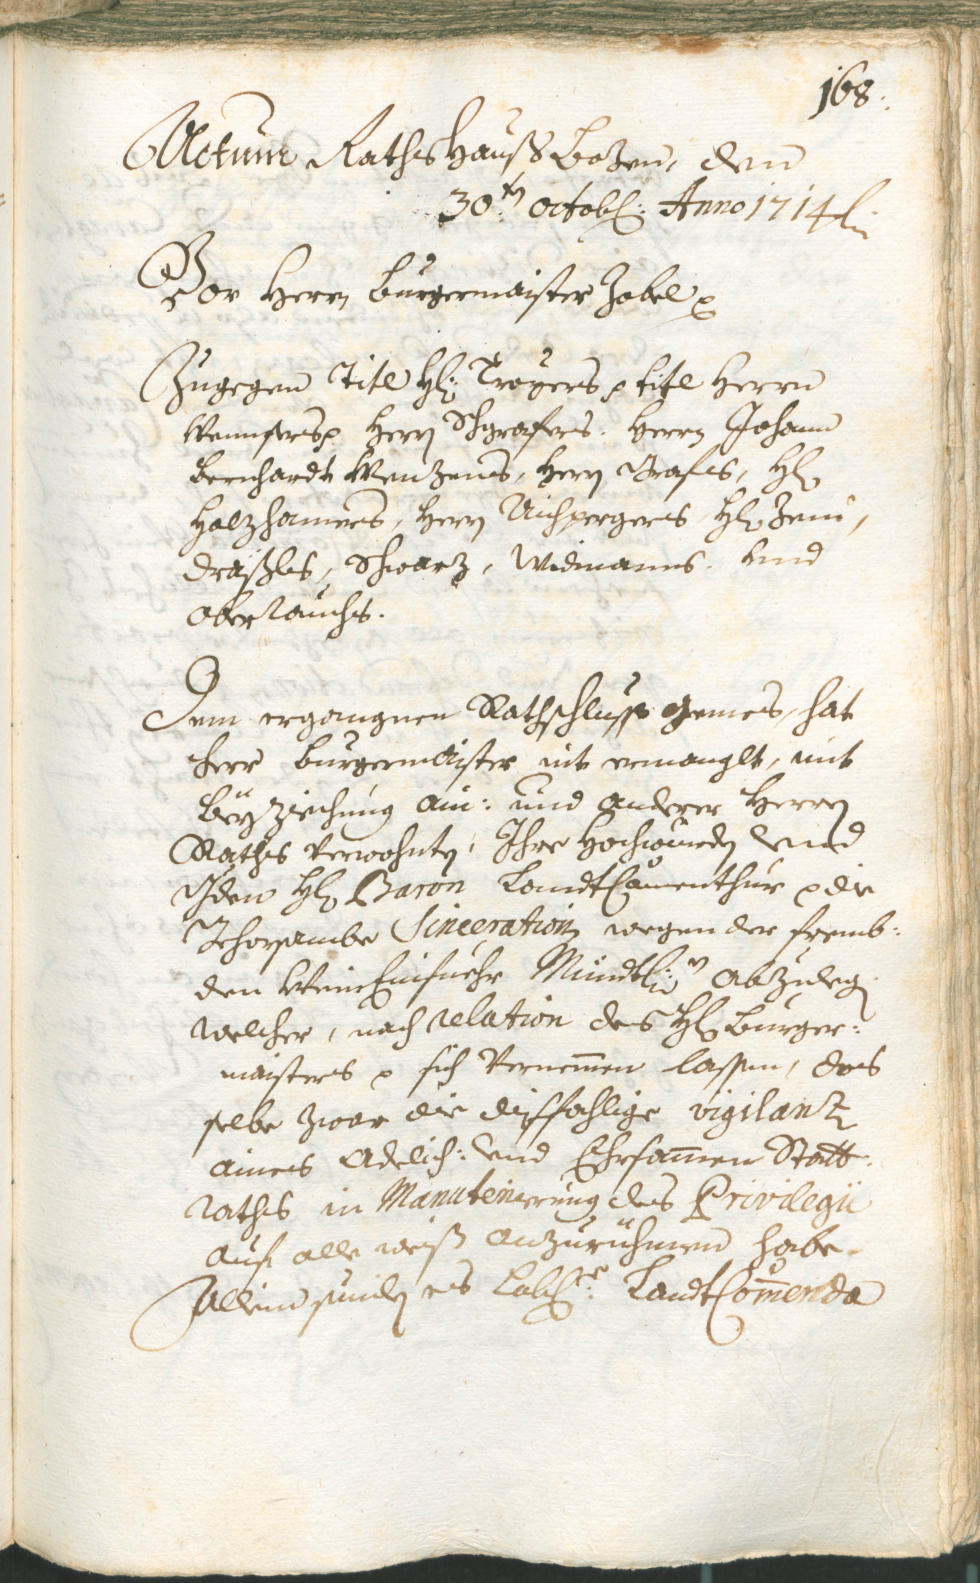 168.
Actum Rathshauß Bozen, den
30.ten Octobr: Anno 1714
Vor Herrn Burgermaister Zobel p
Zugegen Titl H: Troyers p titl Herrn
Wennsers p Herrn Schgrafers. Herrn Johann
Bernhardt Wenzens, Herrn Grafes, H:
Holzhamers, Herrn Aichpergers H: Zeni,
Dräxls, Schwarz, Widmanns. Und
Oberrauchs.
Dem ergangnen Rathschluss gemes, hat
Herr Burgermaister nit ermanglt, mit
Beyziehung ain: und anderer Herrn
Raths Verwohnten, Ihro Hochwürden und
Gnaden H: Baron LandtComenthur p die
Gehorsambe Sinceration wegen der fremb:
den Wein Einfuehr Mündtl:n abzulegen
welcher, nach relation des H: Burger:
maisters p sich Vernemmen lassen, das
selbe zwar die dißfahlige vigilanz
aines Adelich: und Ehrsammen Statt:
raths in Manutenierung des Privilegii
auf alle weiß anzurühmen habe.
Allein seind es Lobl:e LandtCommenda